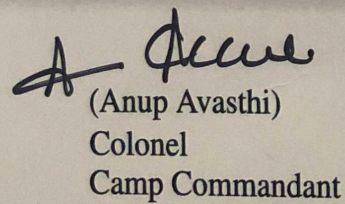 (Anup Avasthi)
Colonel
Camp Commandant